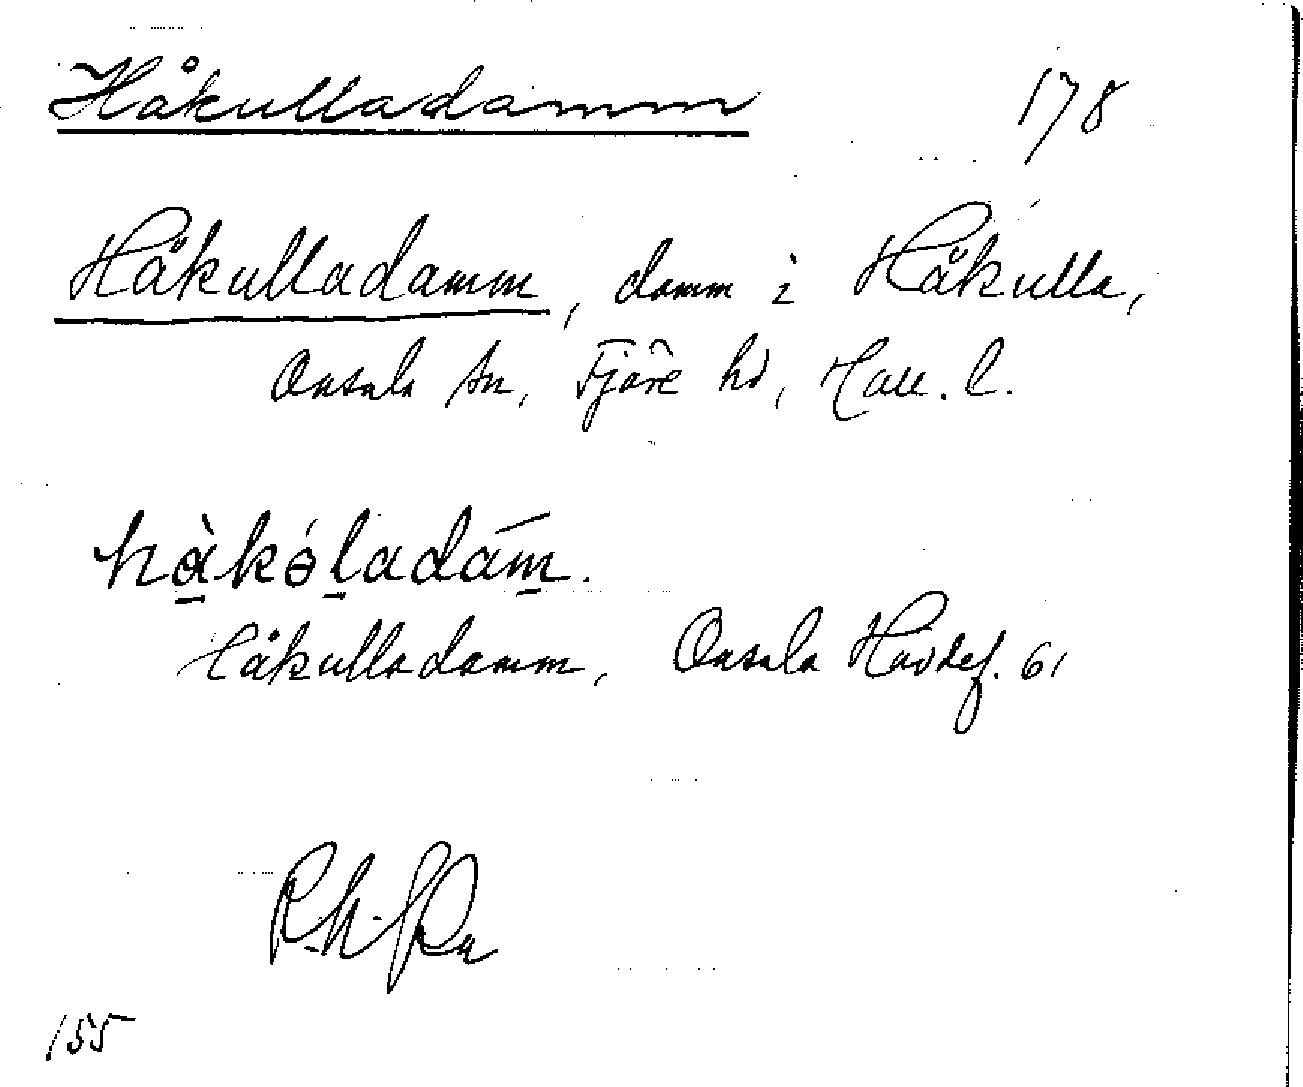 Håkulladamm 178
Håkulladamm, damm i Håkulla,
Onsala sn, Fjäre hd, Hall. l.
hàkóladám.
Håkulladamm, Onsala Havdef. 61
155